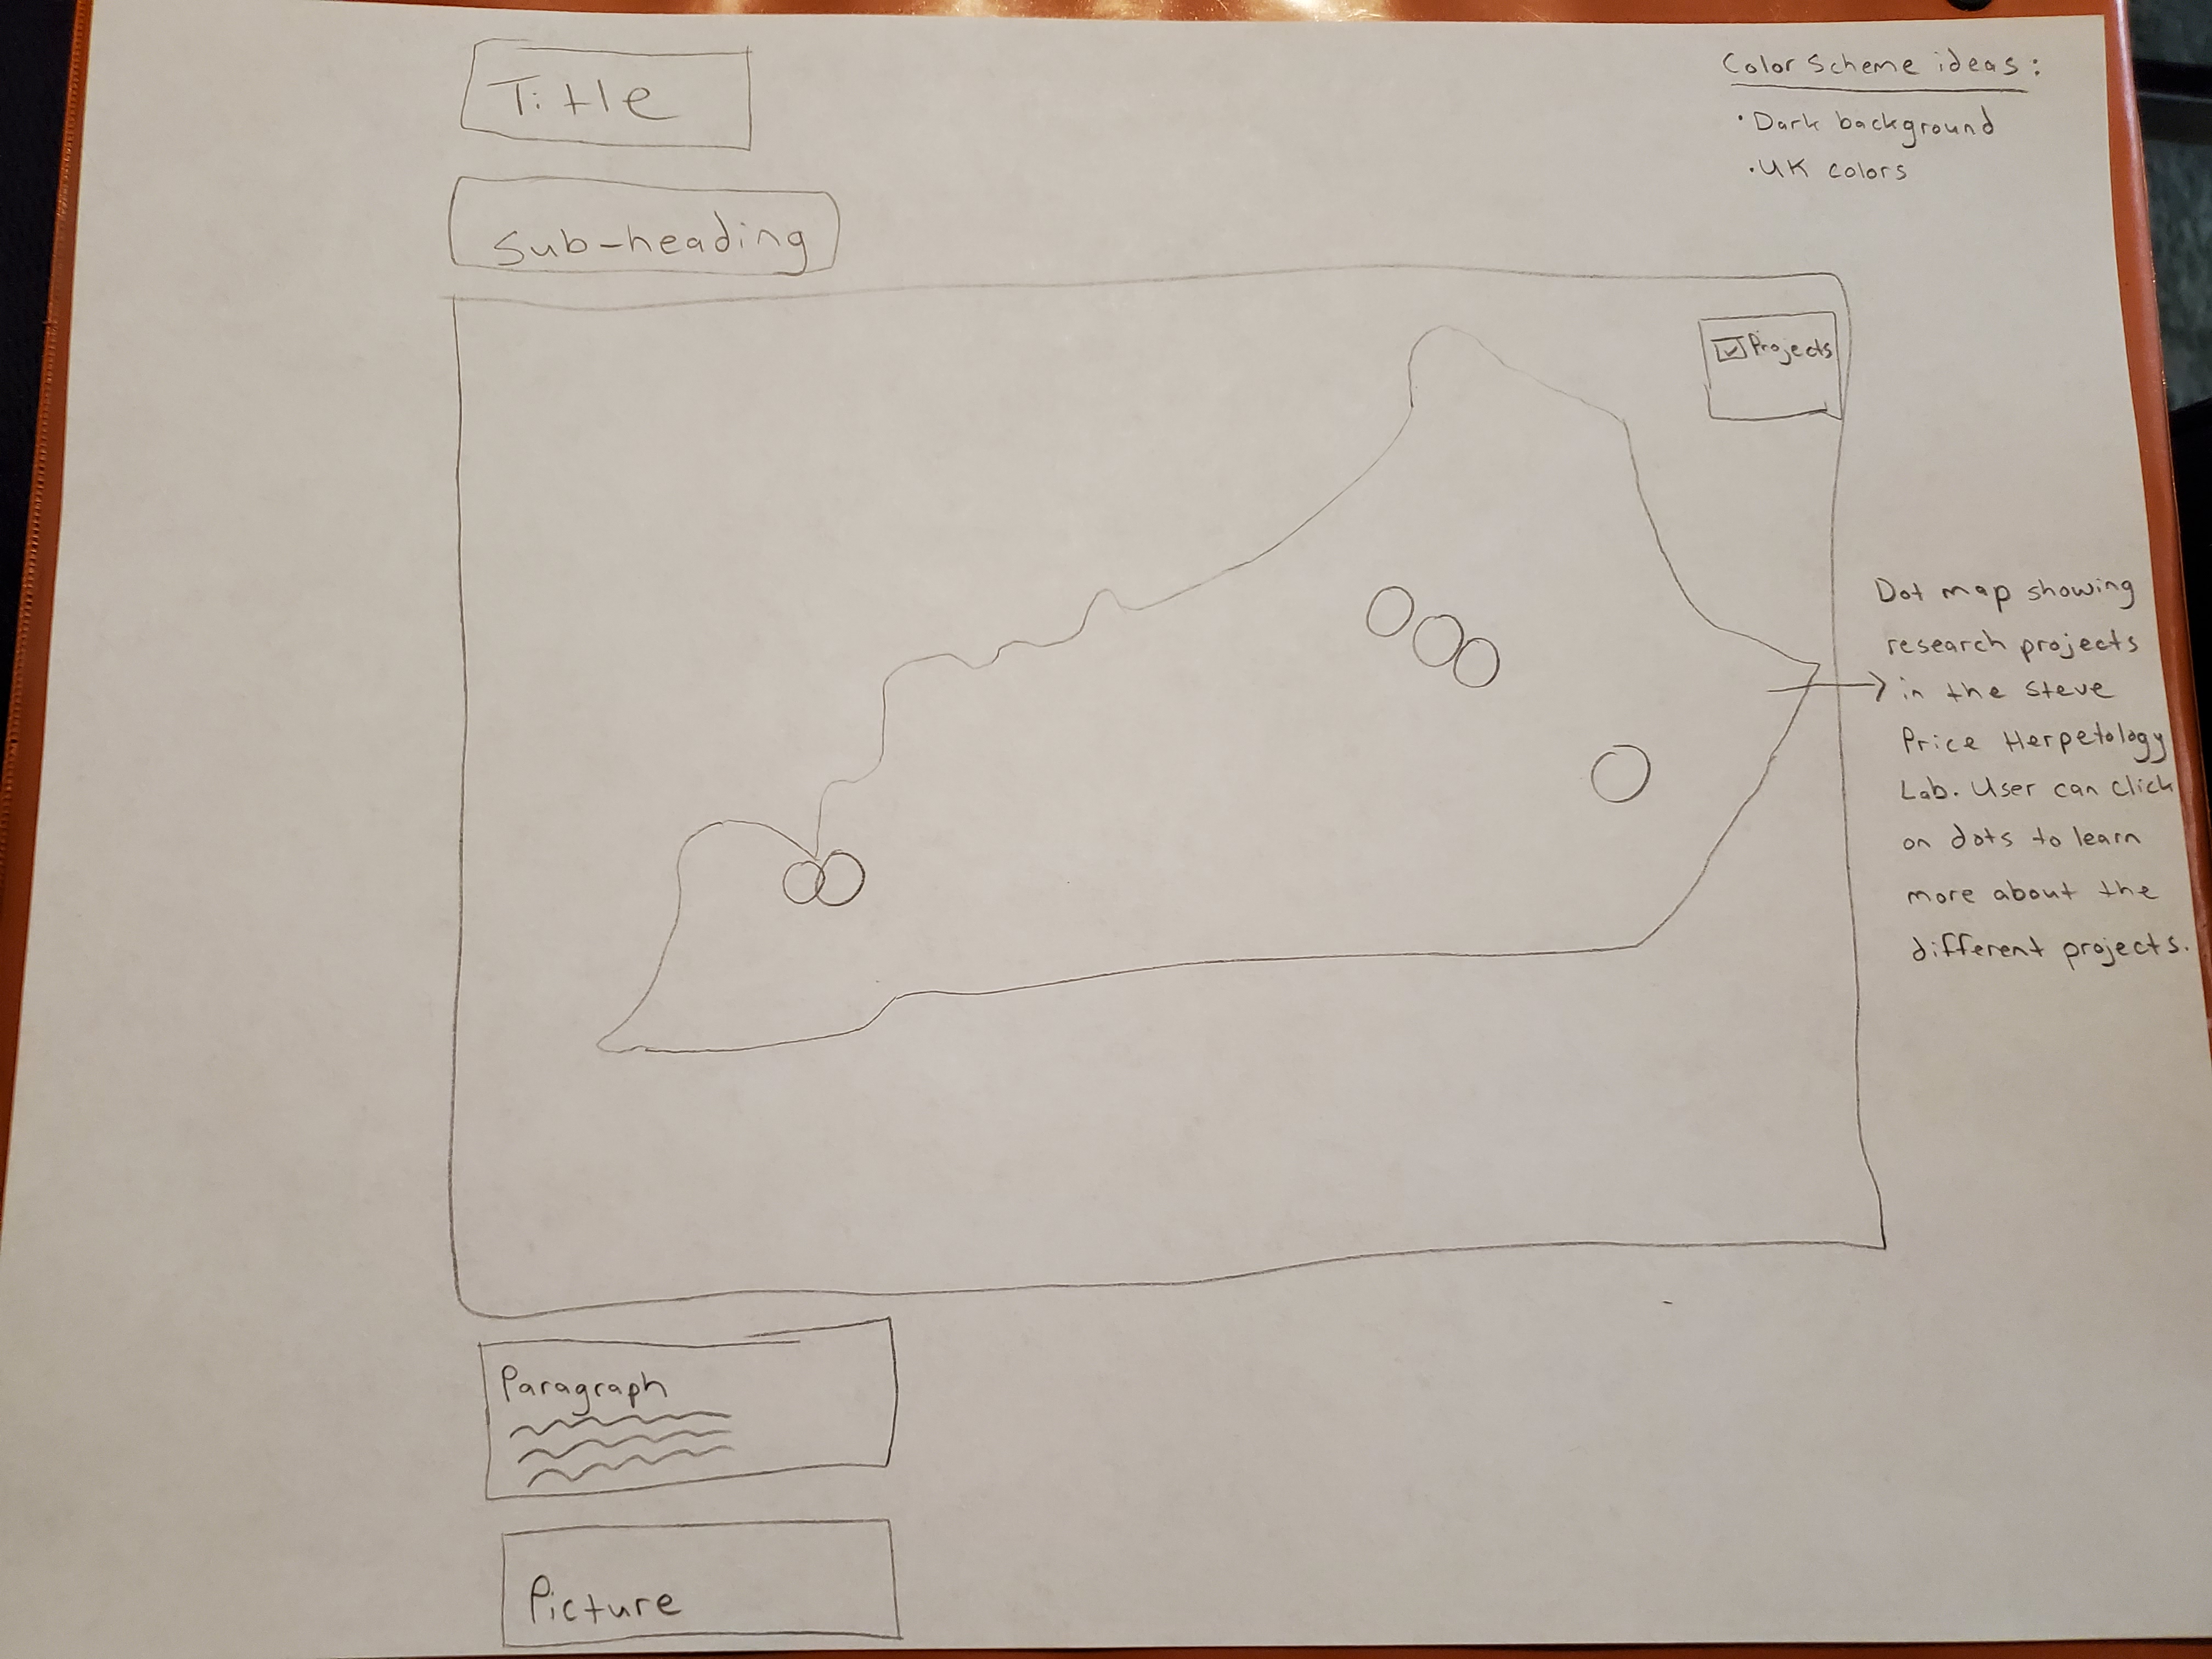 Title
Sub-heading
Color Scheme ideas:
• Dark background
• UK colors
Projects
Dot map showing
research projects
in the Steve
Price Herpetology
Lab. User can click
on dots to learn
more about the
different projects.
Paragraph
Picture